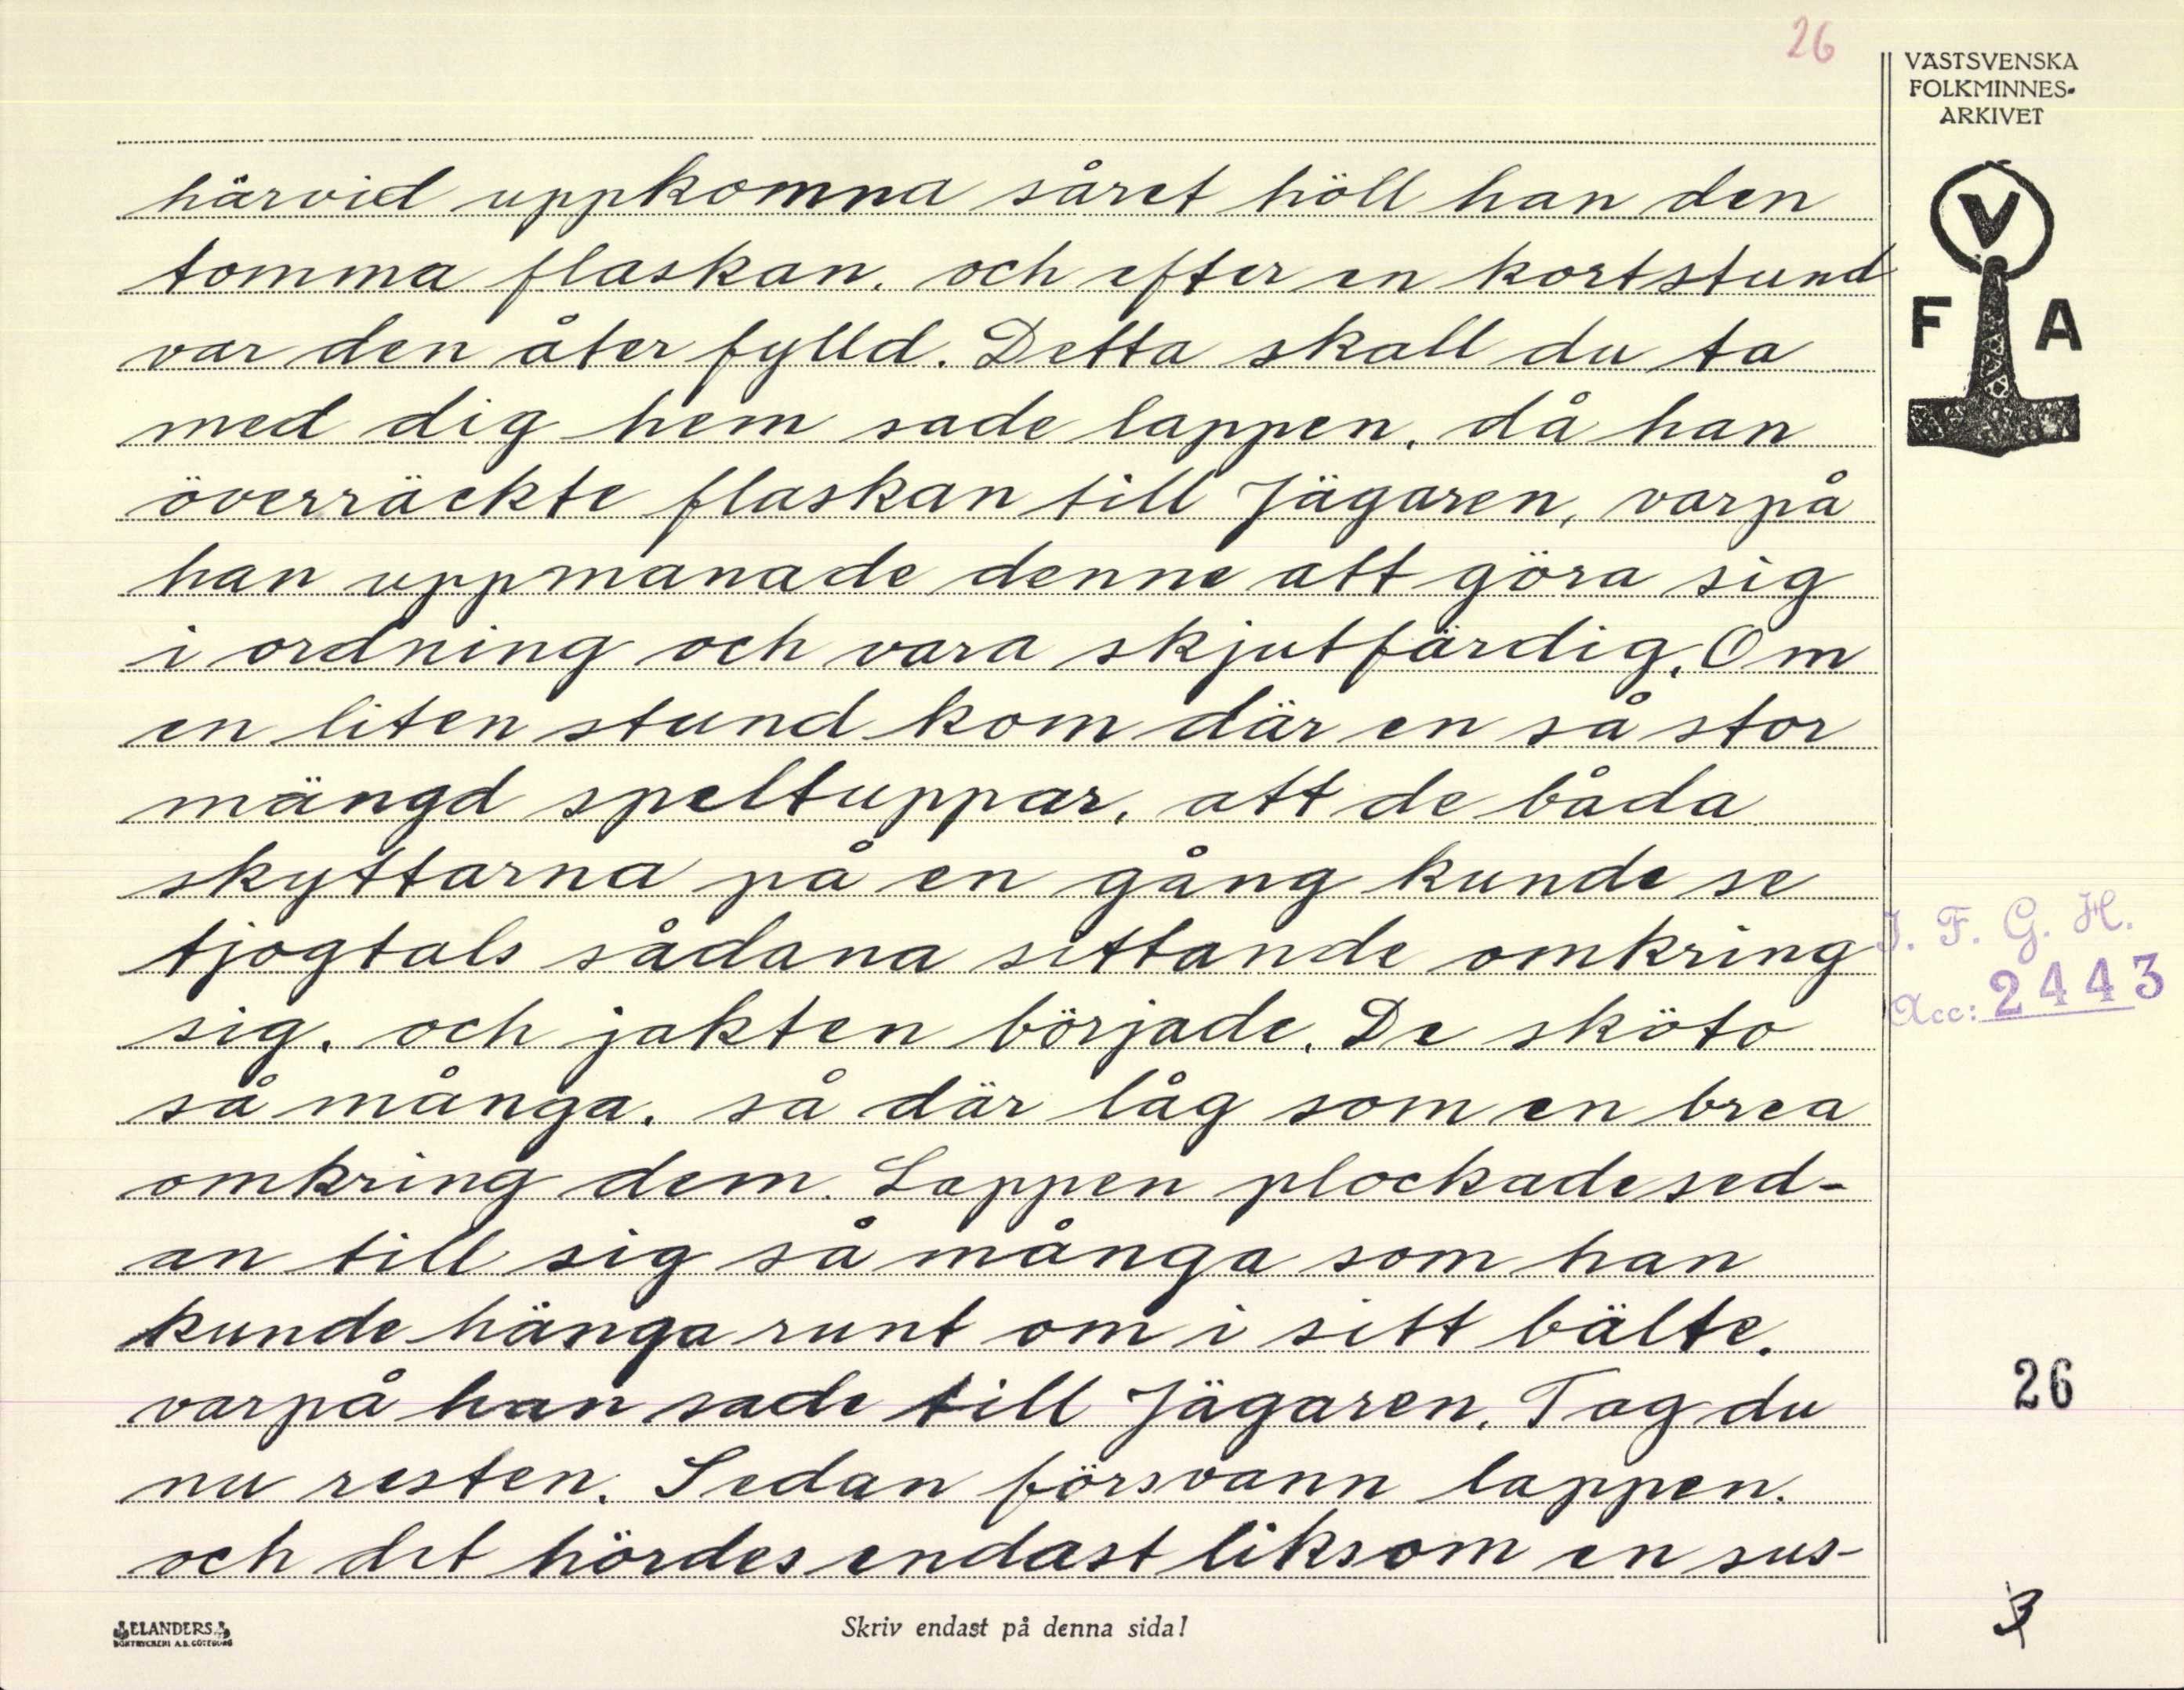 26
VÄSTSVENSKA
FOLKMINNES-
ARKIVET
V
F A
härvid uppkomna såret höll han den
tomma flaskan. och efter en kort stund
var den åter fylld. Detta skall du ta
med dig hem sade lappen, då han
överräckte flaskan till Jägaren, varpå
han uppmanade denne att göra sig
i ordning och vara skjutfärdig. Om
en liten stund kom där en så stor
mängd speltuppar, att de båda
skyttarna på en gång kunde se
tjogtals sådana sittande omkring
sig. och jakten började. De sköto
så många. så där låg som en brea
omkring dem. Lappen plockade sed-
an till sig så många som han
kunde hänga runt om i sitt bälte.
varpå han sade till Jägaren. Tag du
nu resten. Sedan försvann lappen.
och det hördes endast liksom en sus-
I. F. G. H.
Acc: 2443
26
3
ELANDERS
BOKTRYCKERI A.B. GÖTEBORG
Skriv endast på denna sida!